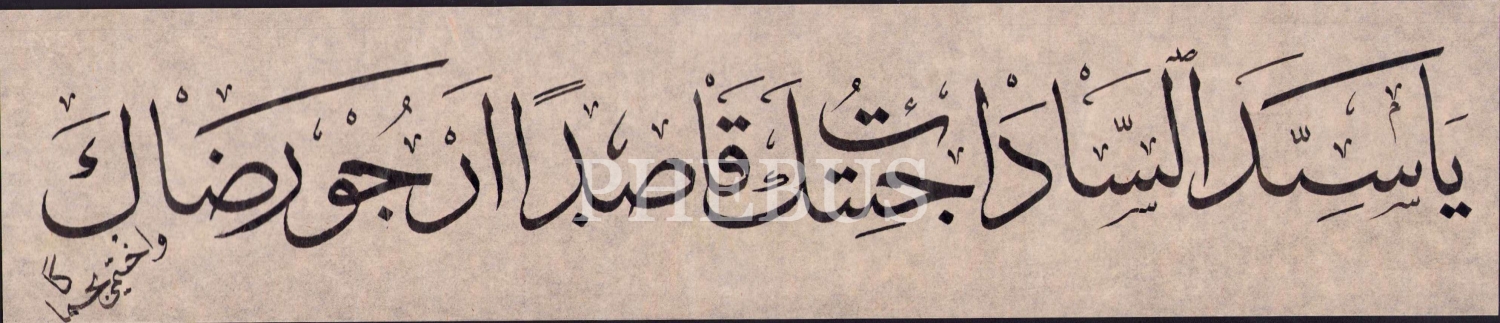 يَا سَيِّدَ السَّادَاتِ جِئْتُكَ قَاصِدًا اَرْجُوْ رِضَاكَ
واحتمى بحماكا
PHEBUS